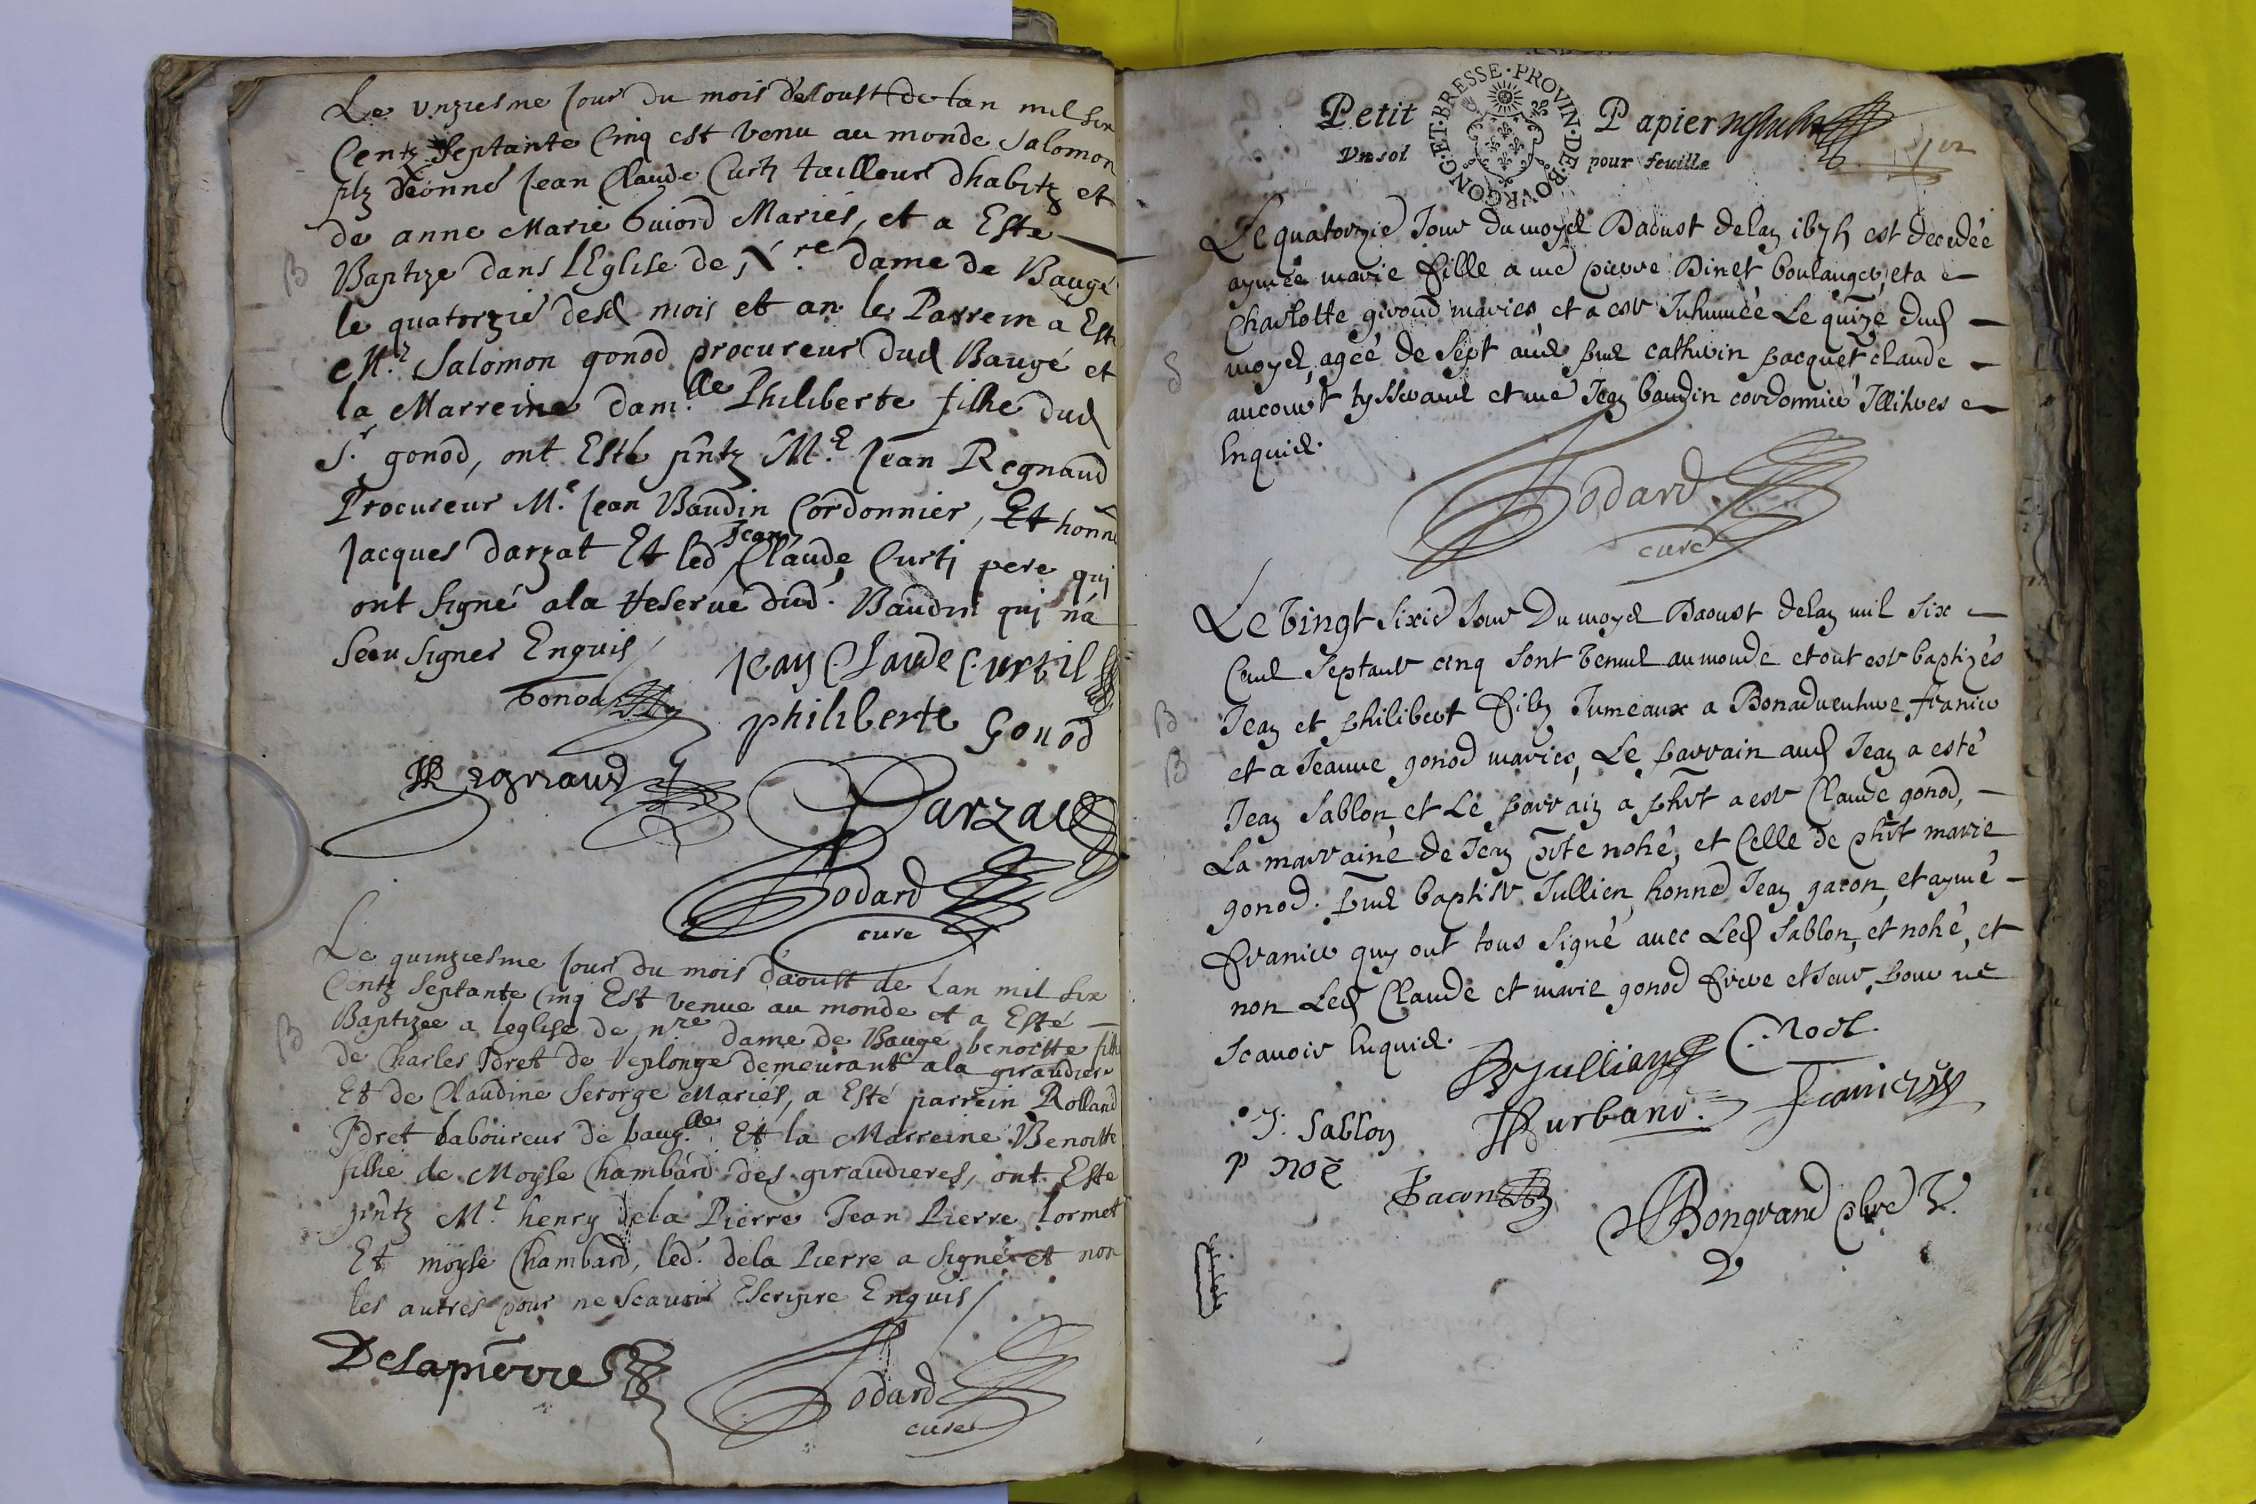 Le unziesme Jour du mois d'aoust de lan mil six
Centz Septante Cinq est venu au monde Salomon
filz d'honne Jean Claude Curti tailleur dhabitz et
de anne Marie Guiord Mariés, et a Este
B
Baptize dans lEglise de Nre dame de Baugé
le quatorzie desd mois et an le Parrein a Esté
Mr Salomon gonod procureur dud Baugé et
la Marreine damlle Philiberte filhe dud
Sr gonod, ont Esté pntz Mr Jean Regnaud
Procureur Me Jean Baudin Cordonnier, Et honne
Jacques darzat Et led Jean Claude Curti pere qui
ont signé a la reserve dud. Baudin qui na
sceu signer Enquis
Jean Claude Curtil
Gonod
philiberte Gonod
Regnaud
Darzac
Godard
cure
Le quinziesme Jour du mois d'aoust de Lan mil six
Centz Septante Cinq Est venue au monde et a Esté
B
Baptizee a leglise de nre dame de Baugé, benoitte filhe
de Charles Pdret de Veplonge demeurant a la giraudiere
Et de Claudine Serorge Mariés, a Esté parrein Rolland
Pdret Laboureur de baug.lle Et la Marreine Benoitte
filhe de Moyse Chambard des giraudieres, ont Este
pntz Mr henry dela Pierre Jean Pierre Lormet
Et moyse Chambard, led. dela Pierre a signé et non
les autres pour ne scavoir Escripre Enquis
Delapierre
Godard
cure
Petit Papier
Un sol pour feuille
BOVRGONG·ET·BRESSE·PROVIN·DE
Le quatorzie Jour du moys Daoust de lan 1675 est decedée
aymée marie fille a me pierre Dinet boulanger, et a
Charlotte giroud maries et a est Inhumée Le quinze dud
S
moys, agée de sept ans pns cathrin pacquet claude
aucourt tysserand et me Jean baudin cordonnier Illitres
Enquis.
Godard
curé
Le Vingt sixie Jour Du moys Daoust de lan mil six
Cens Septante cinq sont Venus au monde et ont este baptizés
B
Jean et philibert filz Jumeaux a Bonadventure franier
B
et a Jeanne gonod maries, Le parrain aud Jean a esté
Jean Sablon et Le parrain a phrt a este Claude gonod,
La marraine de Jean pte nohé, et Celle de phrt marie
gonod. pns baptiste Jullien, honned Jean gacon, et aymé
franier quy ont tous signé avec Led Sablon, et nohé, et
non Led Claude et marie gonod frere et seur, pour ne
scavoir Enquis.
B Jullian
C. Noel.
J. Sablon
Purbano
franier
P noë
Gacon
Bongrand pbre V.